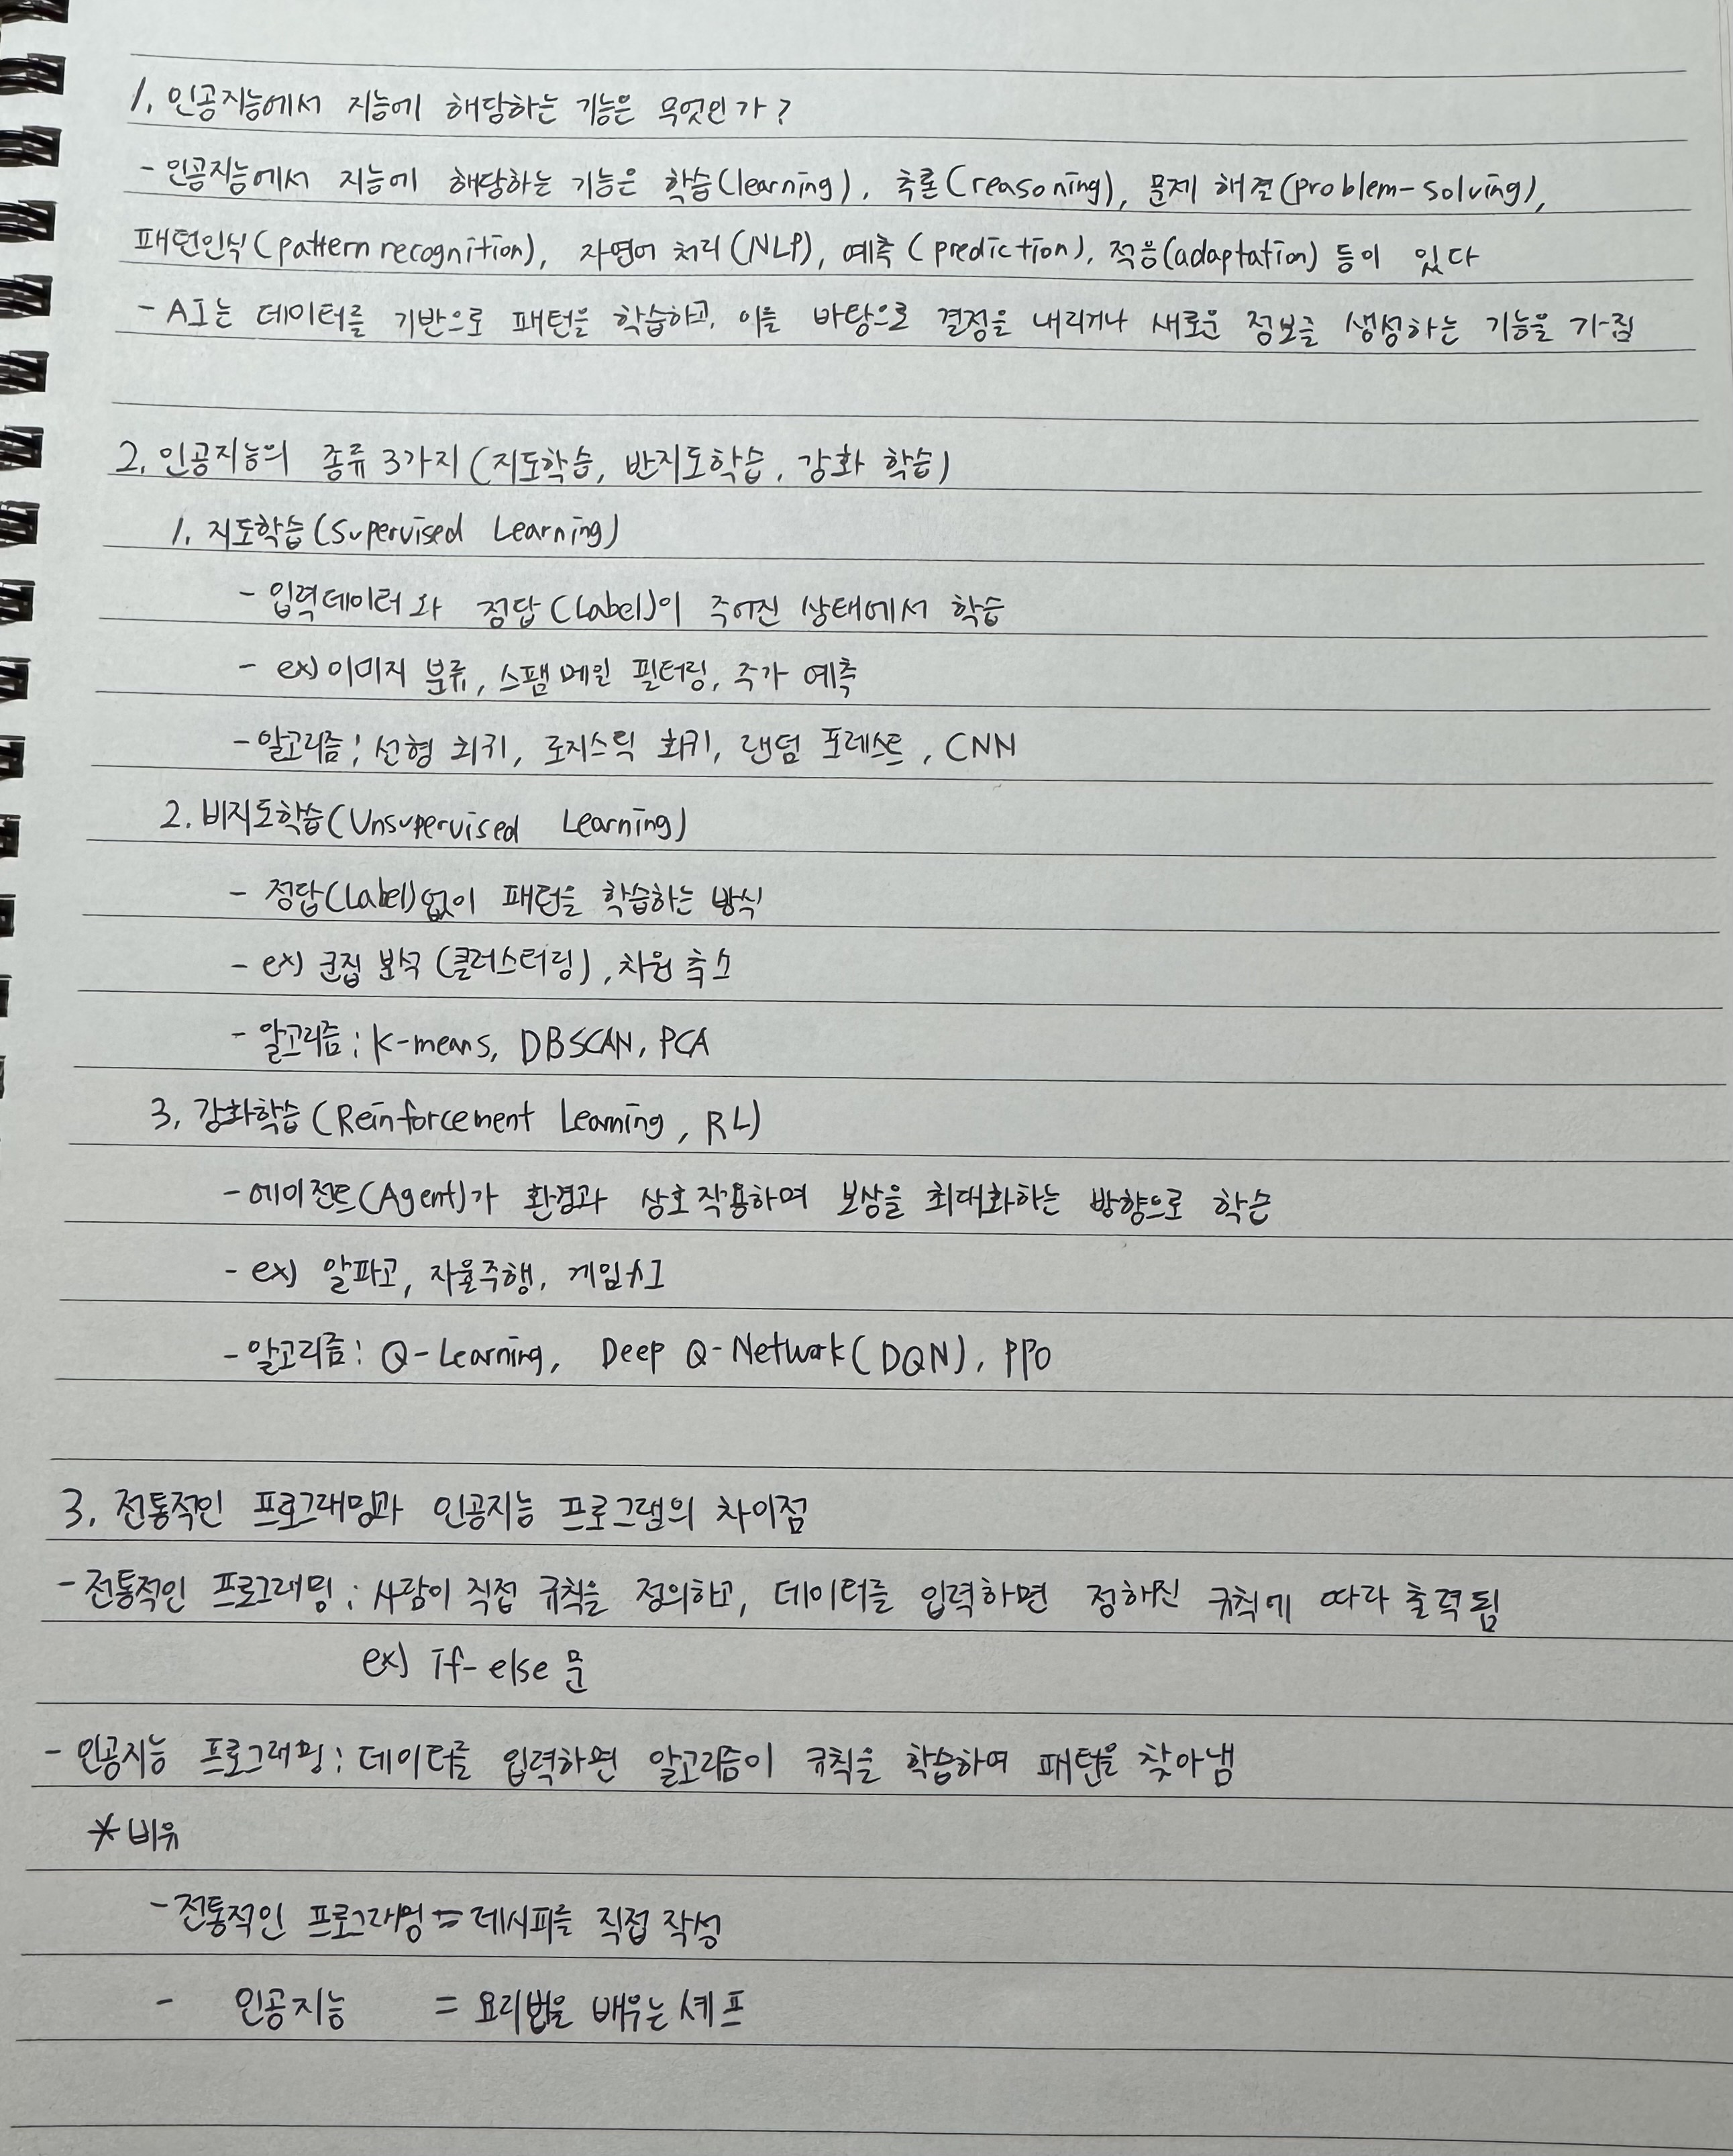 1. 인공지능에서 지능에 해당하는 기능은 무엇인가?
- 인공지능에서 지능에 해당하는 기능은 학습(learning), 추론(reasoning), 문제 해결(problem-solving),
패턴인식(pattern recognition), 자연어 처리(NLP), 예측(prediction), 적응(adaptation) 등이 있다
- AI는 데이터를 기반으로 패턴을 학습하고, 이를 바탕으로 결정을 내리거나 새로운 정보를 생성하는 기능을 가짐
2. 인공지능의 종류 3가지(지도학습, 반지도학습, 강화 학습)
1. 지도학습(Supervised Learning)
- 입력데이터와 정답(Label)이 주어진 상태에서 학습
- ex) 이미지 분류, 스팸메일 필터링, 주가 예측
- 알고리즘: 선형 회귀, 로지스틱 회귀, 랜덤 포레스트, CNN
2. 비지도학습(Unsupervised Learning)
- 정답(Label)없이 패턴을 학습하는 방식
- ex) 군집 분석(클러스터링), 차원 축소
- 알고리즘: K-means, DBSCAN, PCA
3. 강화학습(Reinforcement Learning, RL)
- 에이전트(Agent)가 환경과 상호작용하며 보상을 최대화하는 방향으로 학습
- ex) 알파고, 자율주행, 게임AI
- 알고리즘: Q-Learning, Deep Q-Network(DQN), PPO
3. 전통적인 프로그래밍과 인공지능 프로그램의 차이점
- 전통적인 프로그래밍: 사람이 직접 규칙을 정의하고, 데이터를 입력하면 정해진 규칙에 따라 출력됨
ex) If-else 문
- 인공지능 프로그래밍: 데이터를 입력하면 알고리즘이 규칙을 학습하여 패턴을 찾아냄
* 비유
- 전통적인 프로그래밍 = 레시피를 직접 작성
- 인공지능 = 요리법을 배우는 셰프